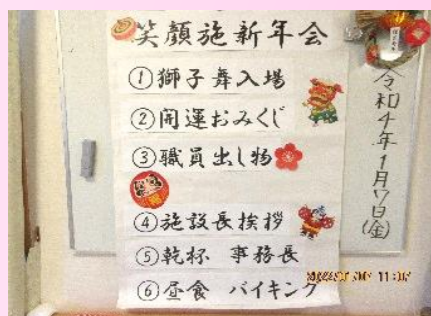 笑顔施新年会
①獅子舞入場
②開運おみくじ
③職員出し物
④施設長挨拶
⑤乾杯 事務長
⑥昼食 バイキング
令和4年1月7日(金)